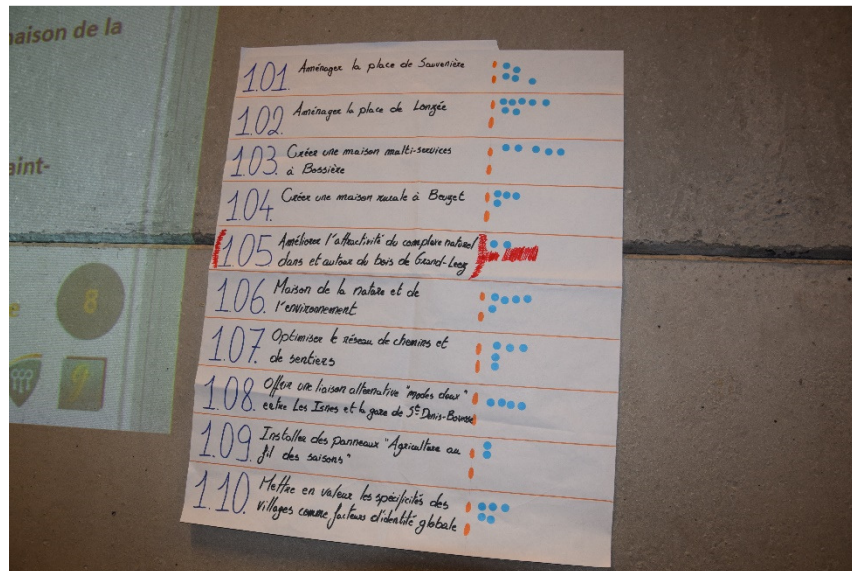 aison de la
aint-
8
1.01. Aménager la place de Sauvenière
1.02. Aménager la place de Lonzée
1.03. Créer une maison multi-services
à Bossière
1.04. Créer une maison rurale à Beuzet
1.05 Améliorer l'attractivité du complexe naturel
dans et autour du bois de Grand-Leez
1.06. Maison de la nature et de
l'environnement
1.07. Optimiser le réseau de chemins et
de sentiers
1.08. Offrir une liaison alternative "modes doux"
entre Les Isnes et la gare de St Denis-Bovesse
1.09. Installer des panneaux "Agriculture au
fil des saisons"
1.10. Mettre en valeur les spécificités des
villages comme facteurs d'identité globale